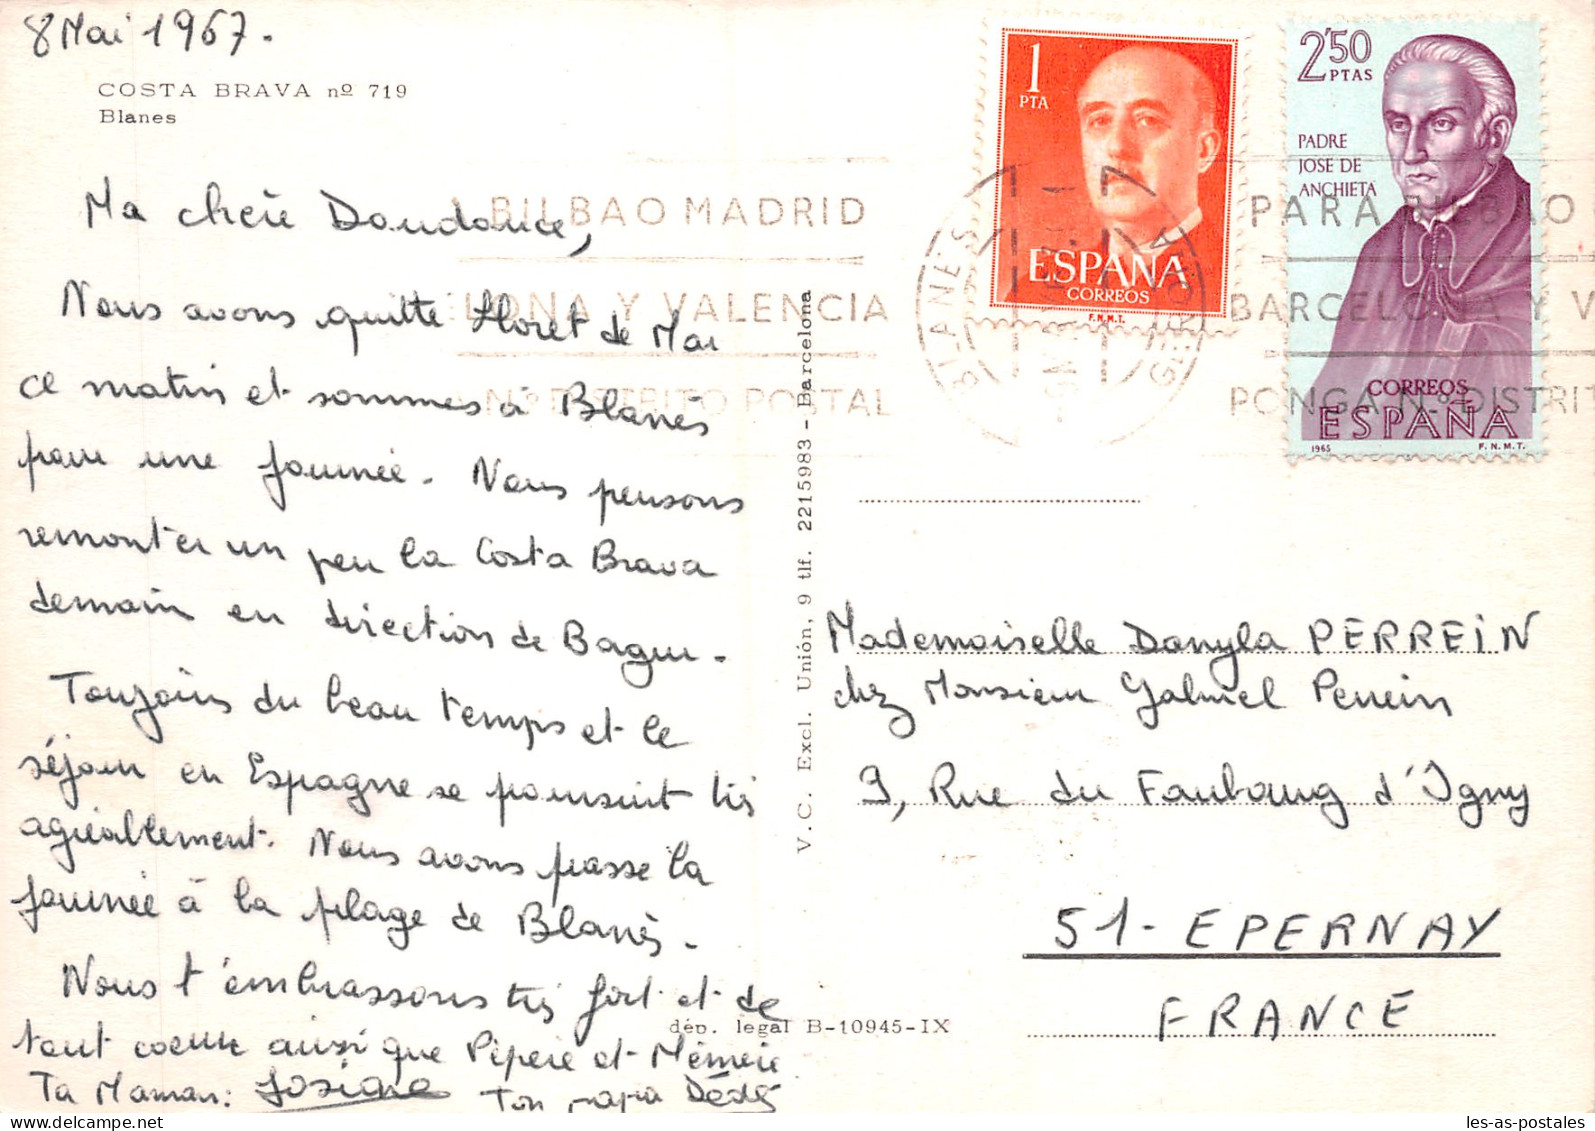 8 Mai 1967.
COSTA BRAVA nº 719
Blanes
Ma chère Doudouce,
Nous avons quitté Lloret de Mar
ce matin et sommes à Blanès
pour une journée. Nous pensons
remonter un peu la Costa Brava
demain en direction de Bagur.
Toujours du beau temps et le
séjour en Espagne se poursuit très
agréablement. Nous avons passé la
journée à la plage de Blanès.
Nous t'embrassons très fort et de
tout coeur ainsi que Pépère et Mémère
Ta Maman: Josiane Ton papa Dédé
V. C. Excl. Unión, 9 tlf. 2215983 - Barcelona
dép. legal B-10945-IX
1
PTA
ESPAÑA
CORREOS
F.N.M.T.
2'50
PTAS
PADRE
JOSE DE
ANCHIETA
CORREOS
ESPAÑA
1965 F.N.M.T.
BILBAO MADRID
ELONA Y VALENCIA
Nº DISTRITO POSTAL
BLANES
GERONA
PARA BILBAO
BARCELONA Y V
PONGA N.º DISTRI
Mademoiselle Danyla PERREIN
chez Monsieur Gabriel Perrein
9, Rue du Faubourg d'Igny
51 - EPERNAY
FRANCE
les-as-postales